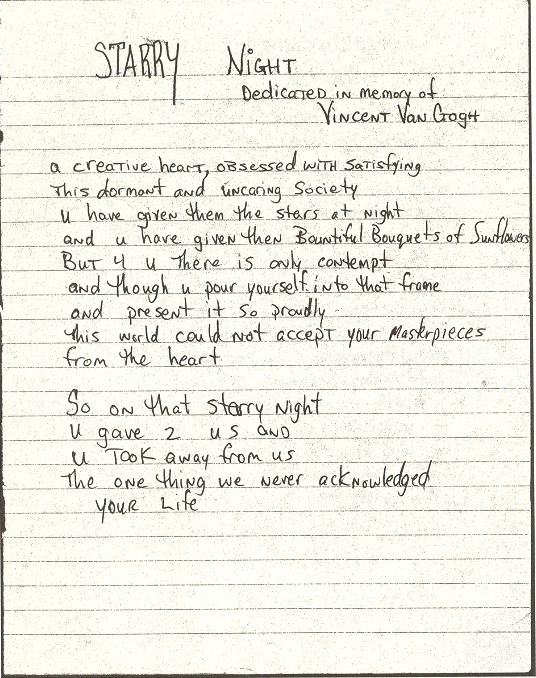 STARRY NIGHT
Dedicated in memory of
Vincent Van Gogh
a creative heart, obsessed with satisfying
This dormant and uncaring Society
u have given them the stars at night
and u have given then Bountiful Bouquets of Sunflowers
But 4 u There is only contempt
and though u pour yourself into that frame
and present it so proudly
this world could not accept your Masterpieces
from the heart
So on that starry Night
u gave 2 us and
u Took away from us
The one thing we never acknowledged
your Life